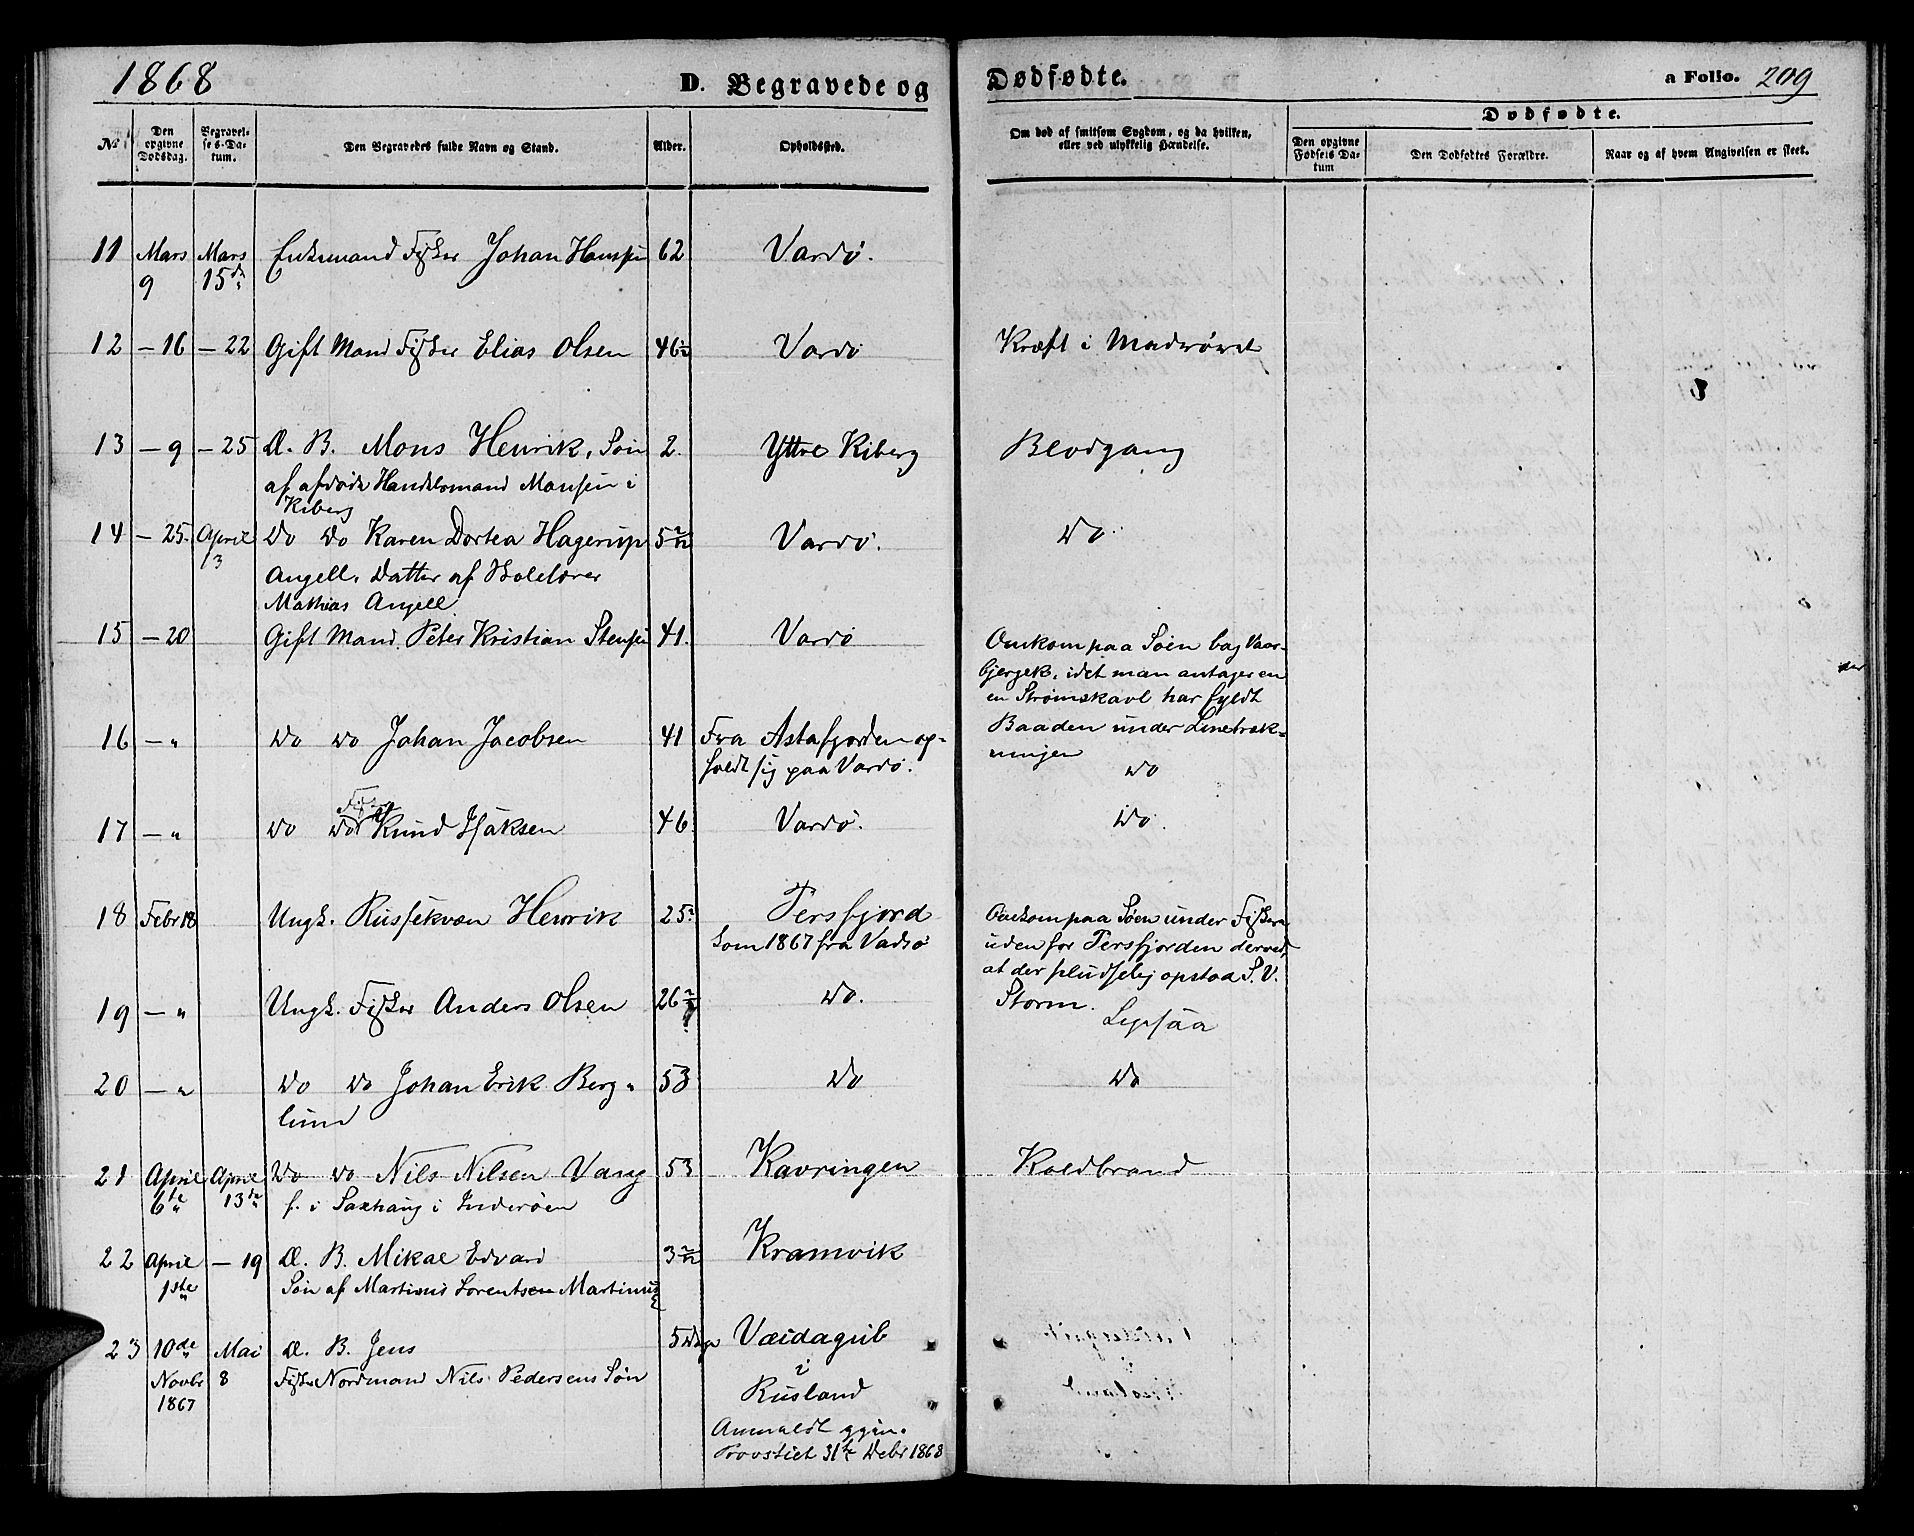 1868 D. Begravede og Dødfødte. a Folio. 209
No Den opgivne Dødsdag. Begravelses-Datum. Den Begravedes fulde Navn og Stand. Alder. Opholdssted. Om død af smitsom Sygdom, og da hvilken, eller ved ulykkelig Hændelse. Dødfødte.
Den opgivne Fødsels Datum Den Dødfødtes Forældre. Naar og af hvem Angivelsen er skeet.
11 Mars 9 Mars 15de Enkemand Fisker Johan Hansen 62 Vardø.
12 — 16 — 22 Gift Mand Fisker Elias Olsen 46 Vardø Kræft i Madrøret
13 — 9 — 25 Æ. B. Mons Henrik, Søn 2. Yttre Kiberg Blodgang
af afdøde Handelsmand Monsen i
Kiberg
14 — 25. April 3 Do Do Karen Dortea Hagerup 5 Vardø. Do.
Angell. Datter af Skolelærer
Mathias Angell
15 — 20 Gift Mand Peter Kristian Stensen 41. Vardø Omkom paa Søen bag Vaar-
bjerget, idet man antager en
en Strømskavl har fyldt
16 — " Do Do Johan Jacobsen 41 Fra Astafjorden op- Baaden under Linetræk-
holdt sig paa Vardø. ningen
Do
17 — " Do Do Knud Isaksen 46. Vardø. Do.
18 Febr 18 Ungk. Russekvæn Henrik 25 Persfjord Omkom paa Søen under Fiskeri
kom 1867 fra Vadsø uden for Persfjorden derved,
at der pludselig opstod S.V.
19 — " Ungk. Fisker Anders Olsen 26 Do. Storm.
20 — " Do Do Johan Erik Berg- 53 Do Do
lund
21 April 6te April 13de Do Do Nils Nilsen Vang 53 Kavringen Koldbrand
f. i Saxhaug i Inderøen
22 April 1ste — 19 Æ. B. Mikal Edvard 3 Kramvik
Søn af Martinus Lorentsen
23 10de Novbr 1867 Mai 8 Æ. B. Jens 5 Dage Vaidagub
Fisker Nordmand Nils Pedersens Søn i
Rusland
Anmeldt
Provstiet 31te Debr 1868